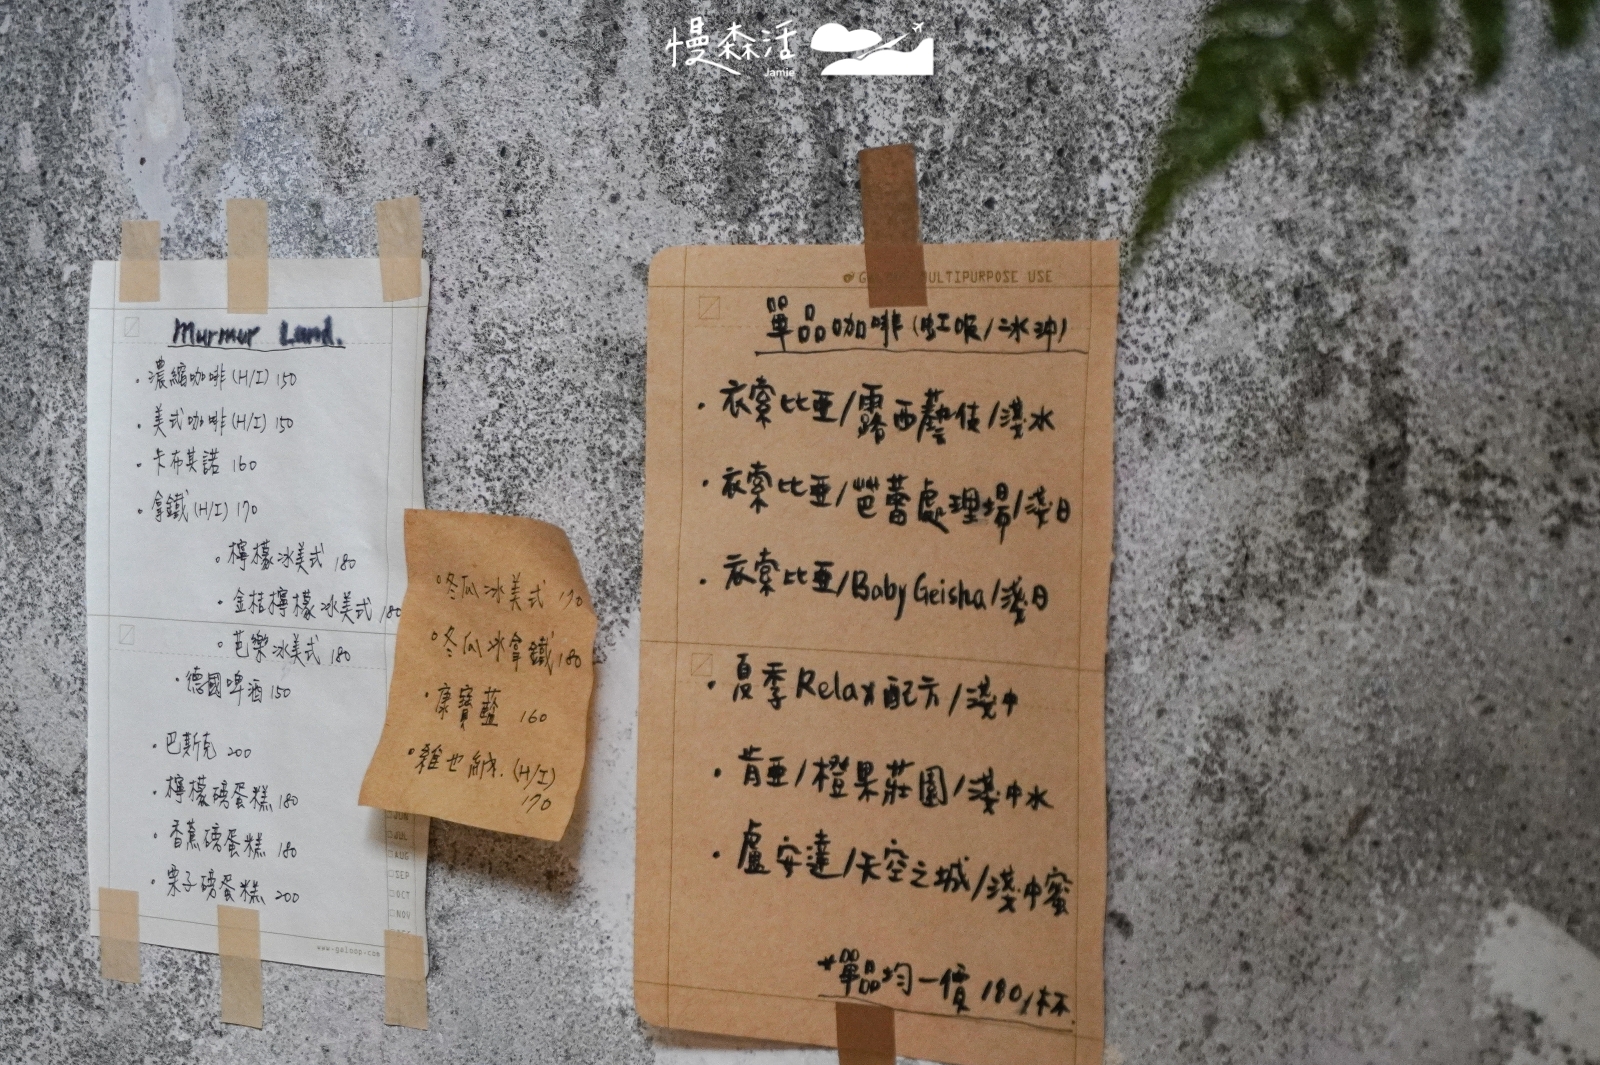 慢森活
Jamie
Murmur Land.
· 濃縮咖啡(H/I) 150
· 美式咖啡(H/I) 150
· 卡布其諾 160
· 拿鐵(H/I) 170
· 檸檬冰美式 180
· 金桔檸檬冰美式 180
· 芭樂冰美式 180
· 德國啤酒 150
· 巴斯克 200
· 檸檬磅蛋糕 180
· 香蕉磅蛋糕 180
· 栗子磅蛋糕 200
JUN
JUL
AUG
SEP
OCT
NOV
冬瓜冰美式 170
冬瓜冰拿鐵 180
康寶藍 160
維也納.(H/I)
170
MULTIPURPOSE USE
單品咖啡(虹吸/冰沖)
· 衣索比亞/露西藝伎/淺水
· 衣索比亞/芭蕾處理場/淺日
· 衣索比亞/Baby Geisha/淺日
· 夏季Relax配方/淺中
· 肯亞/橙果莊園/淺中水
· 盧安達/天空之城/淺中蜜
*單品均一價 180/杯